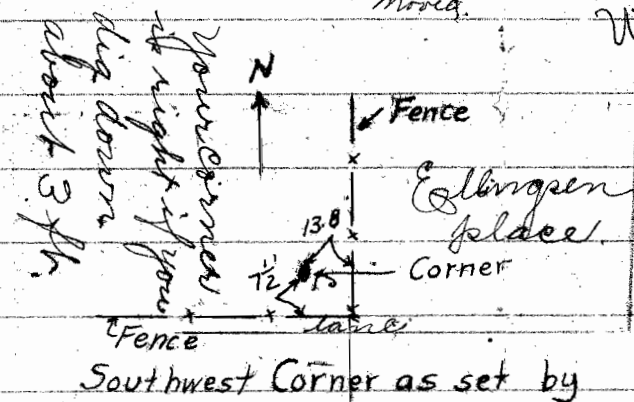 moved.
Your corner
is right if you
dig down
about 3 ft.
N
Fence
Ellingsen
place.
13.8
Corner
lane
Fence
Southwest Corner as set by